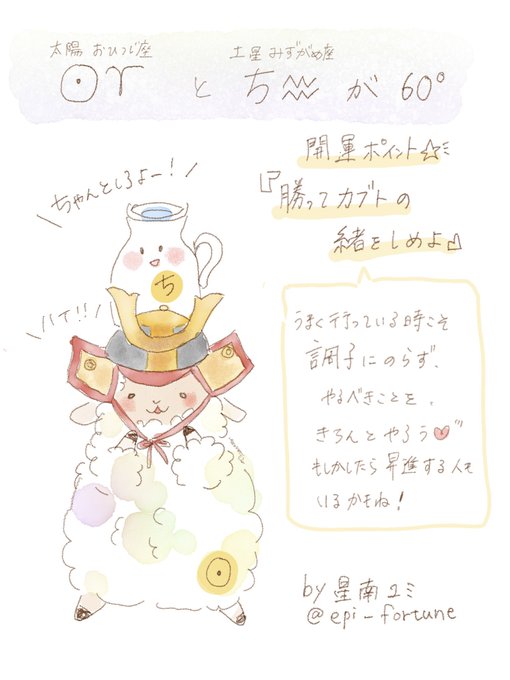 太陽 おひつじ座
土星 みずがめ座
☉♈ と ち♒ が 60°
開運ポイント☆ミ
『勝ってカブトの
緒をしめよ』
＼ちゃんとしろよー!／
ち
＼ハイ!!／
うまく行っている時こそ
調子にのらず、
やるべきことを、
きちんとやろう♥"
もしかしたら昇進する人も
いるかもね!
by 星南ユミ
@epi-fortune